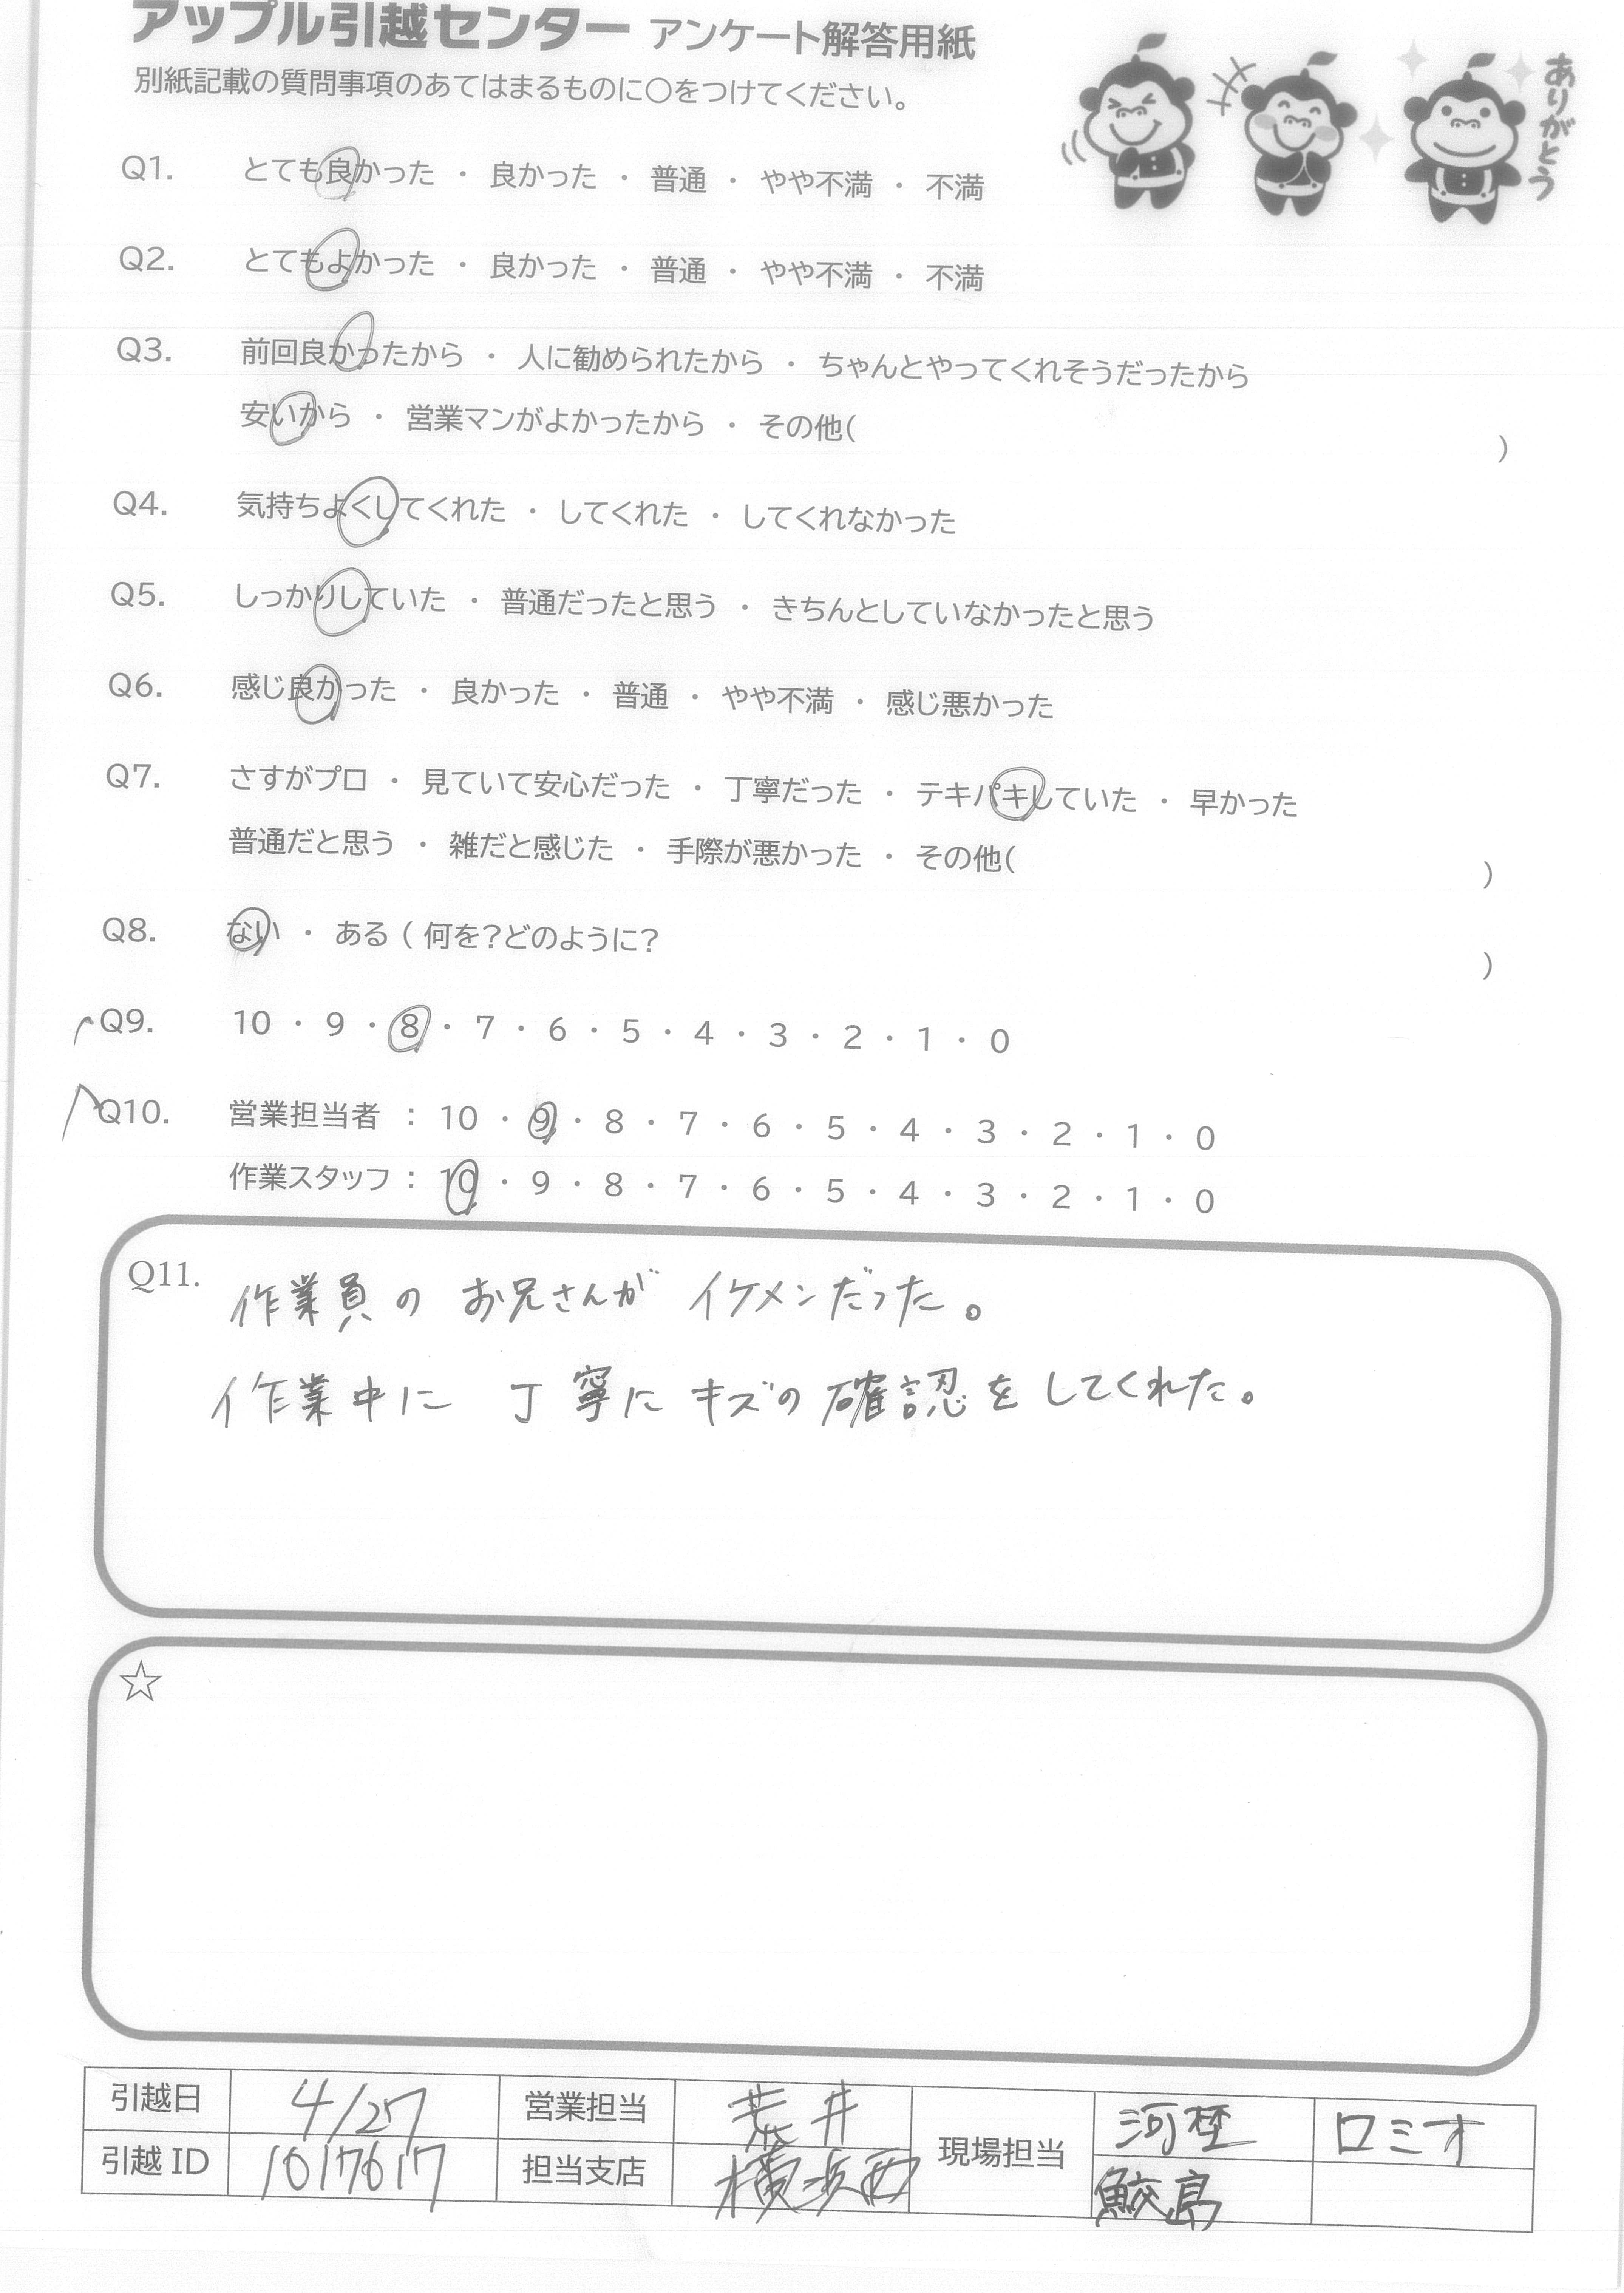 アップル引越センター アンケート解答用紙
別紙記載の質問事項のあてはまるものに○をつけてください。
ありがとう
Q1. とても良かった ・ 良かった ・ 普通 ・ やや不満 ・ 不満
Q2. とてもよかった ・ 良かった ・ 普通 ・ やや不満 ・ 不満
Q3. 前回良かったから ・ 人に勧められたから ・ ちゃんとやってくれそうだったから
安いから ・ 営業マンがよかったから ・ その他( )
Q4. 気持ちよくしてくれた ・ してくれた ・ してくれなかった
Q5. しっかりしていた ・ 普通だったと思う ・ きちんとしていなかったと思う
Q6. 感じ良かった ・ 良かった ・ 普通 ・ やや不満 ・ 感じ悪かった
Q7. さすがプロ ・ 見ていて安心だった ・ 丁寧だった ・ テキパキしていた ・ 早かった
普通だと思う ・ 雑だと感じた ・ 手際が悪かった ・ その他( )
Q8. ない ・ ある ( 何を?どのように? )
Q9. 10 ・ 9 ・ 8 ・ 7 ・ 6 ・ 5 ・ 4 ・ 3 ・ 2 ・ 1 ・ 0
Q10. 営業担当者 : 10 ・ 9 ・ 8 ・ 7 ・ 6 ・ 5 ・ 4 ・ 3 ・ 2 ・ 1 ・ 0
作業スタッフ : 10 ・ 9 ・ 8 ・ 7 ・ 6 ・ 5 ・ 4 ・ 3 ・ 2 ・ 1 ・ 0
Q11. 作業員の お兄さんが イケメンだった。
作業中に 丁寧に キズの 確認を してくれた。
☆
引越日 4/27 営業担当 荒井 現場担当 河埜 ロミオ
引越 ID 1017617 担当支店 横浜西 鮫島